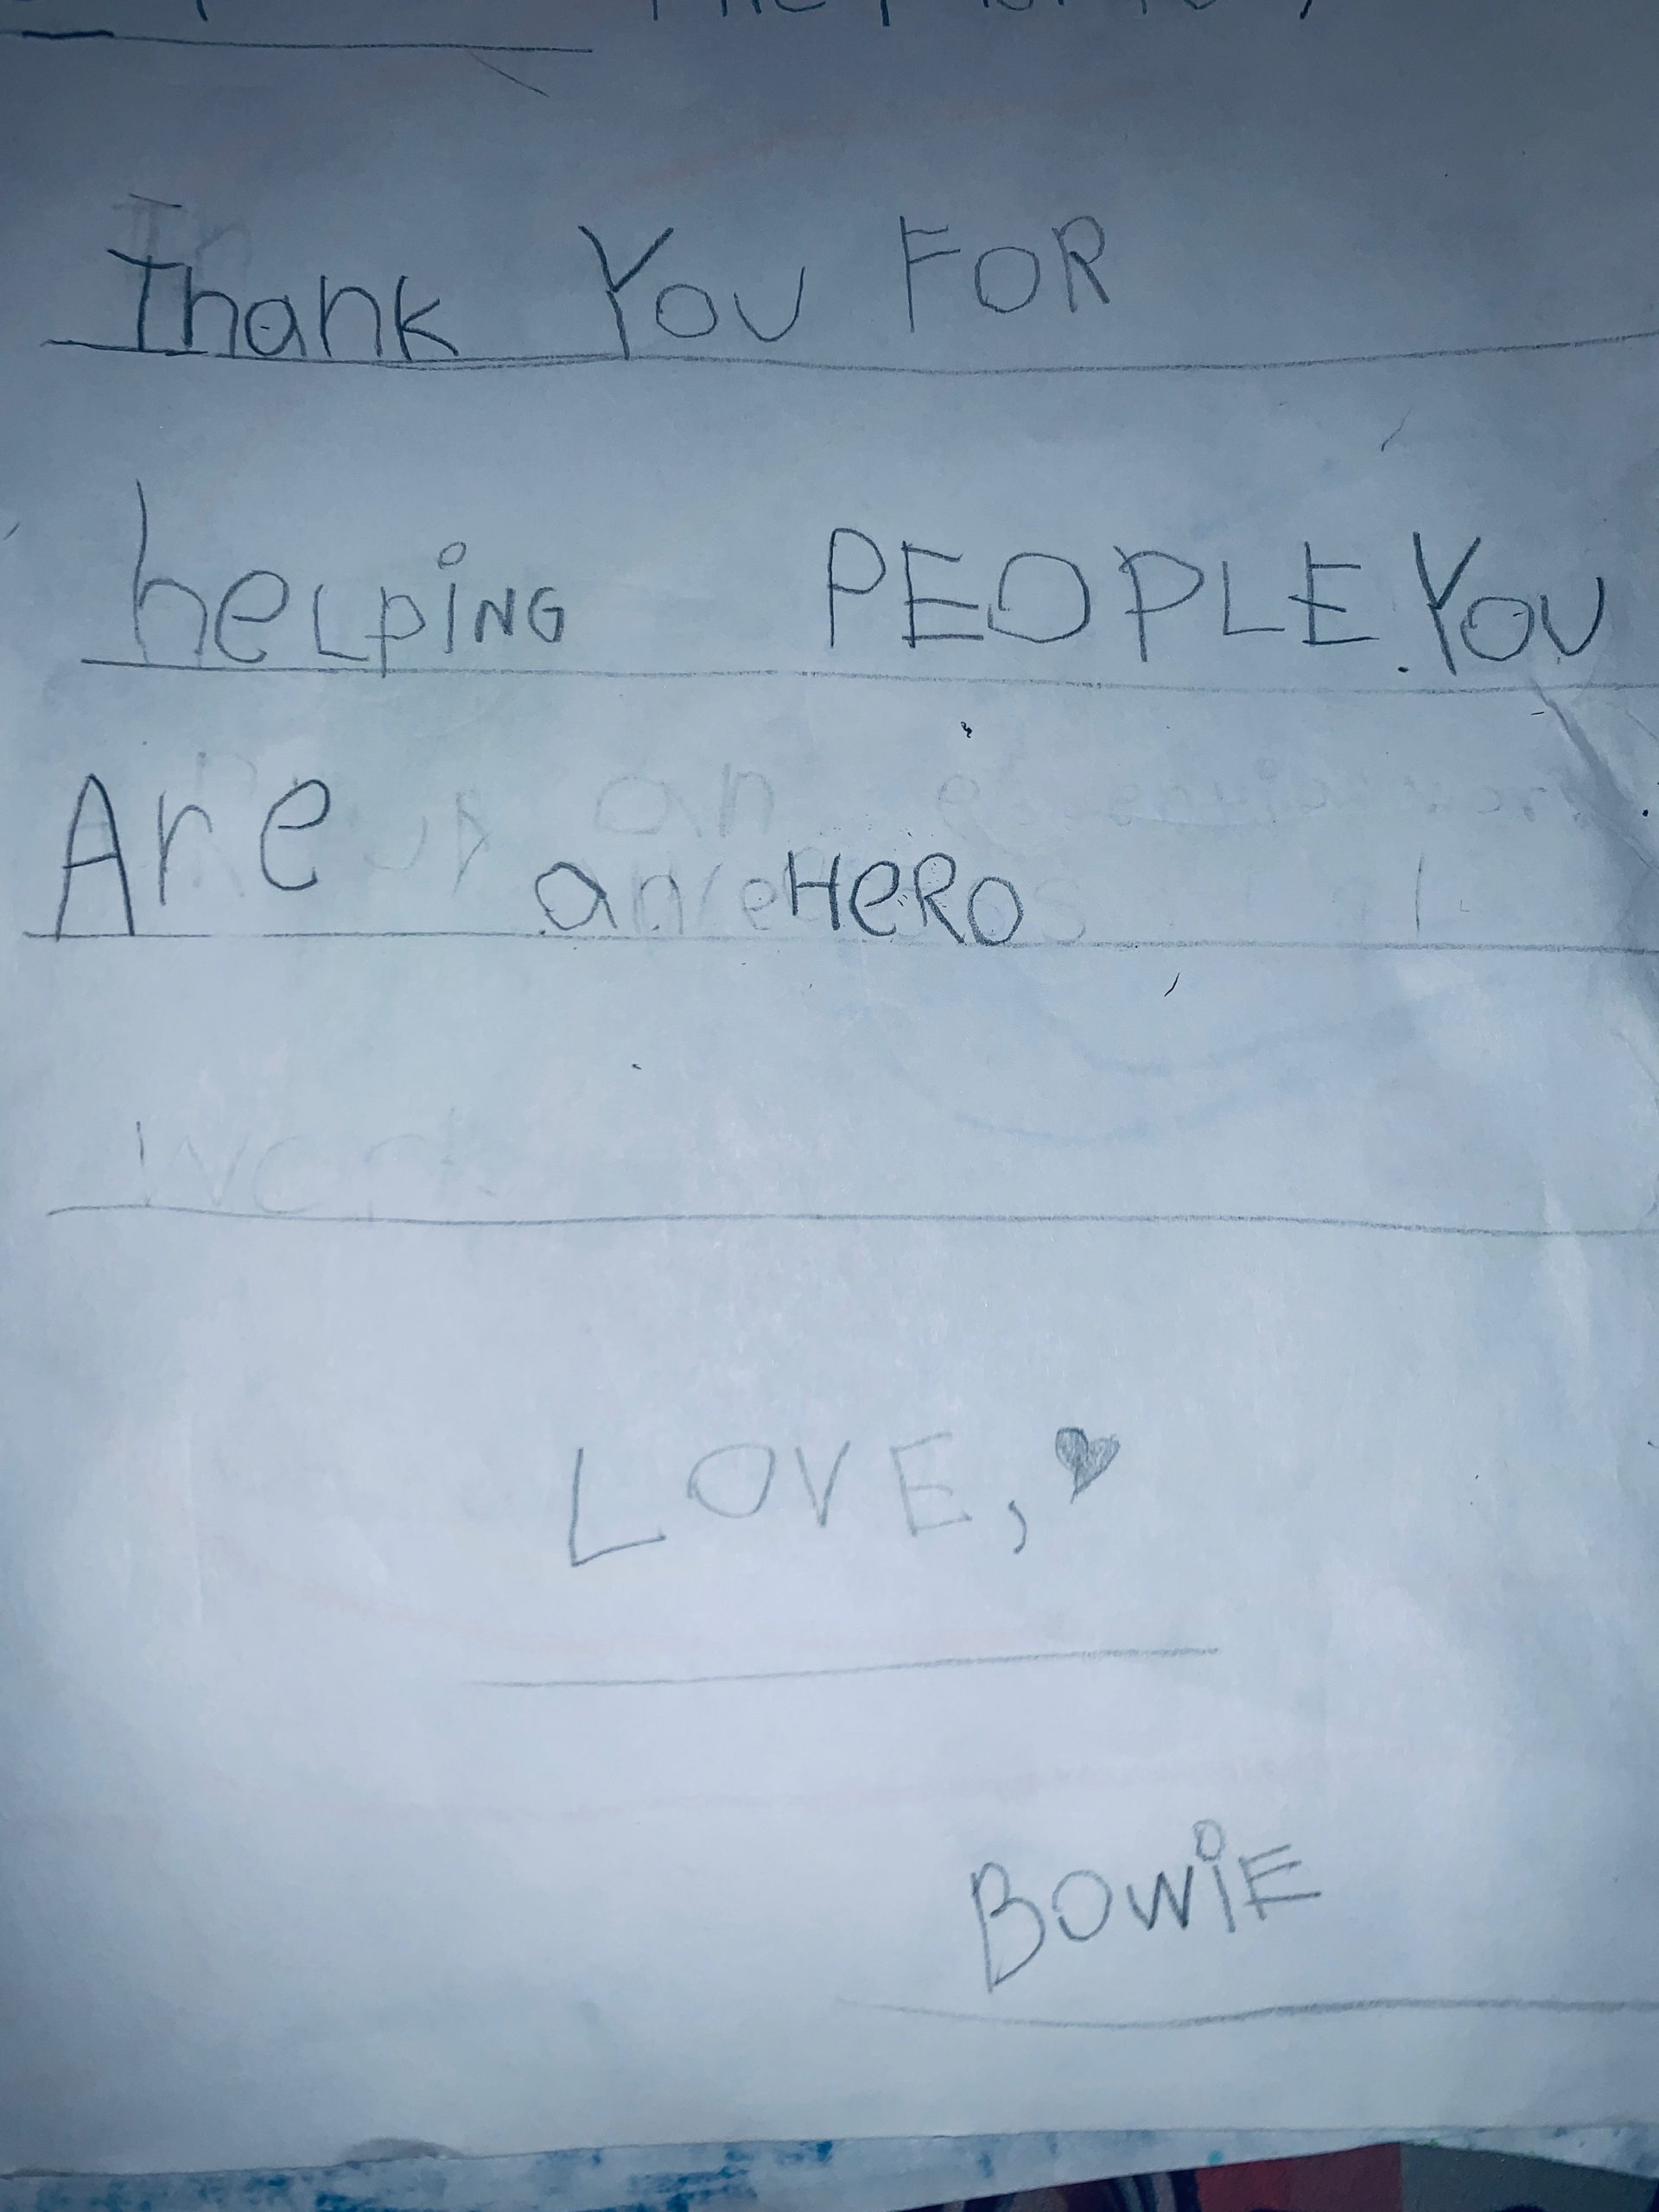 Thank You FOR
heLpiNG PEOPLE. You
Are a HeRO
LOVE, ♥
BOWiE